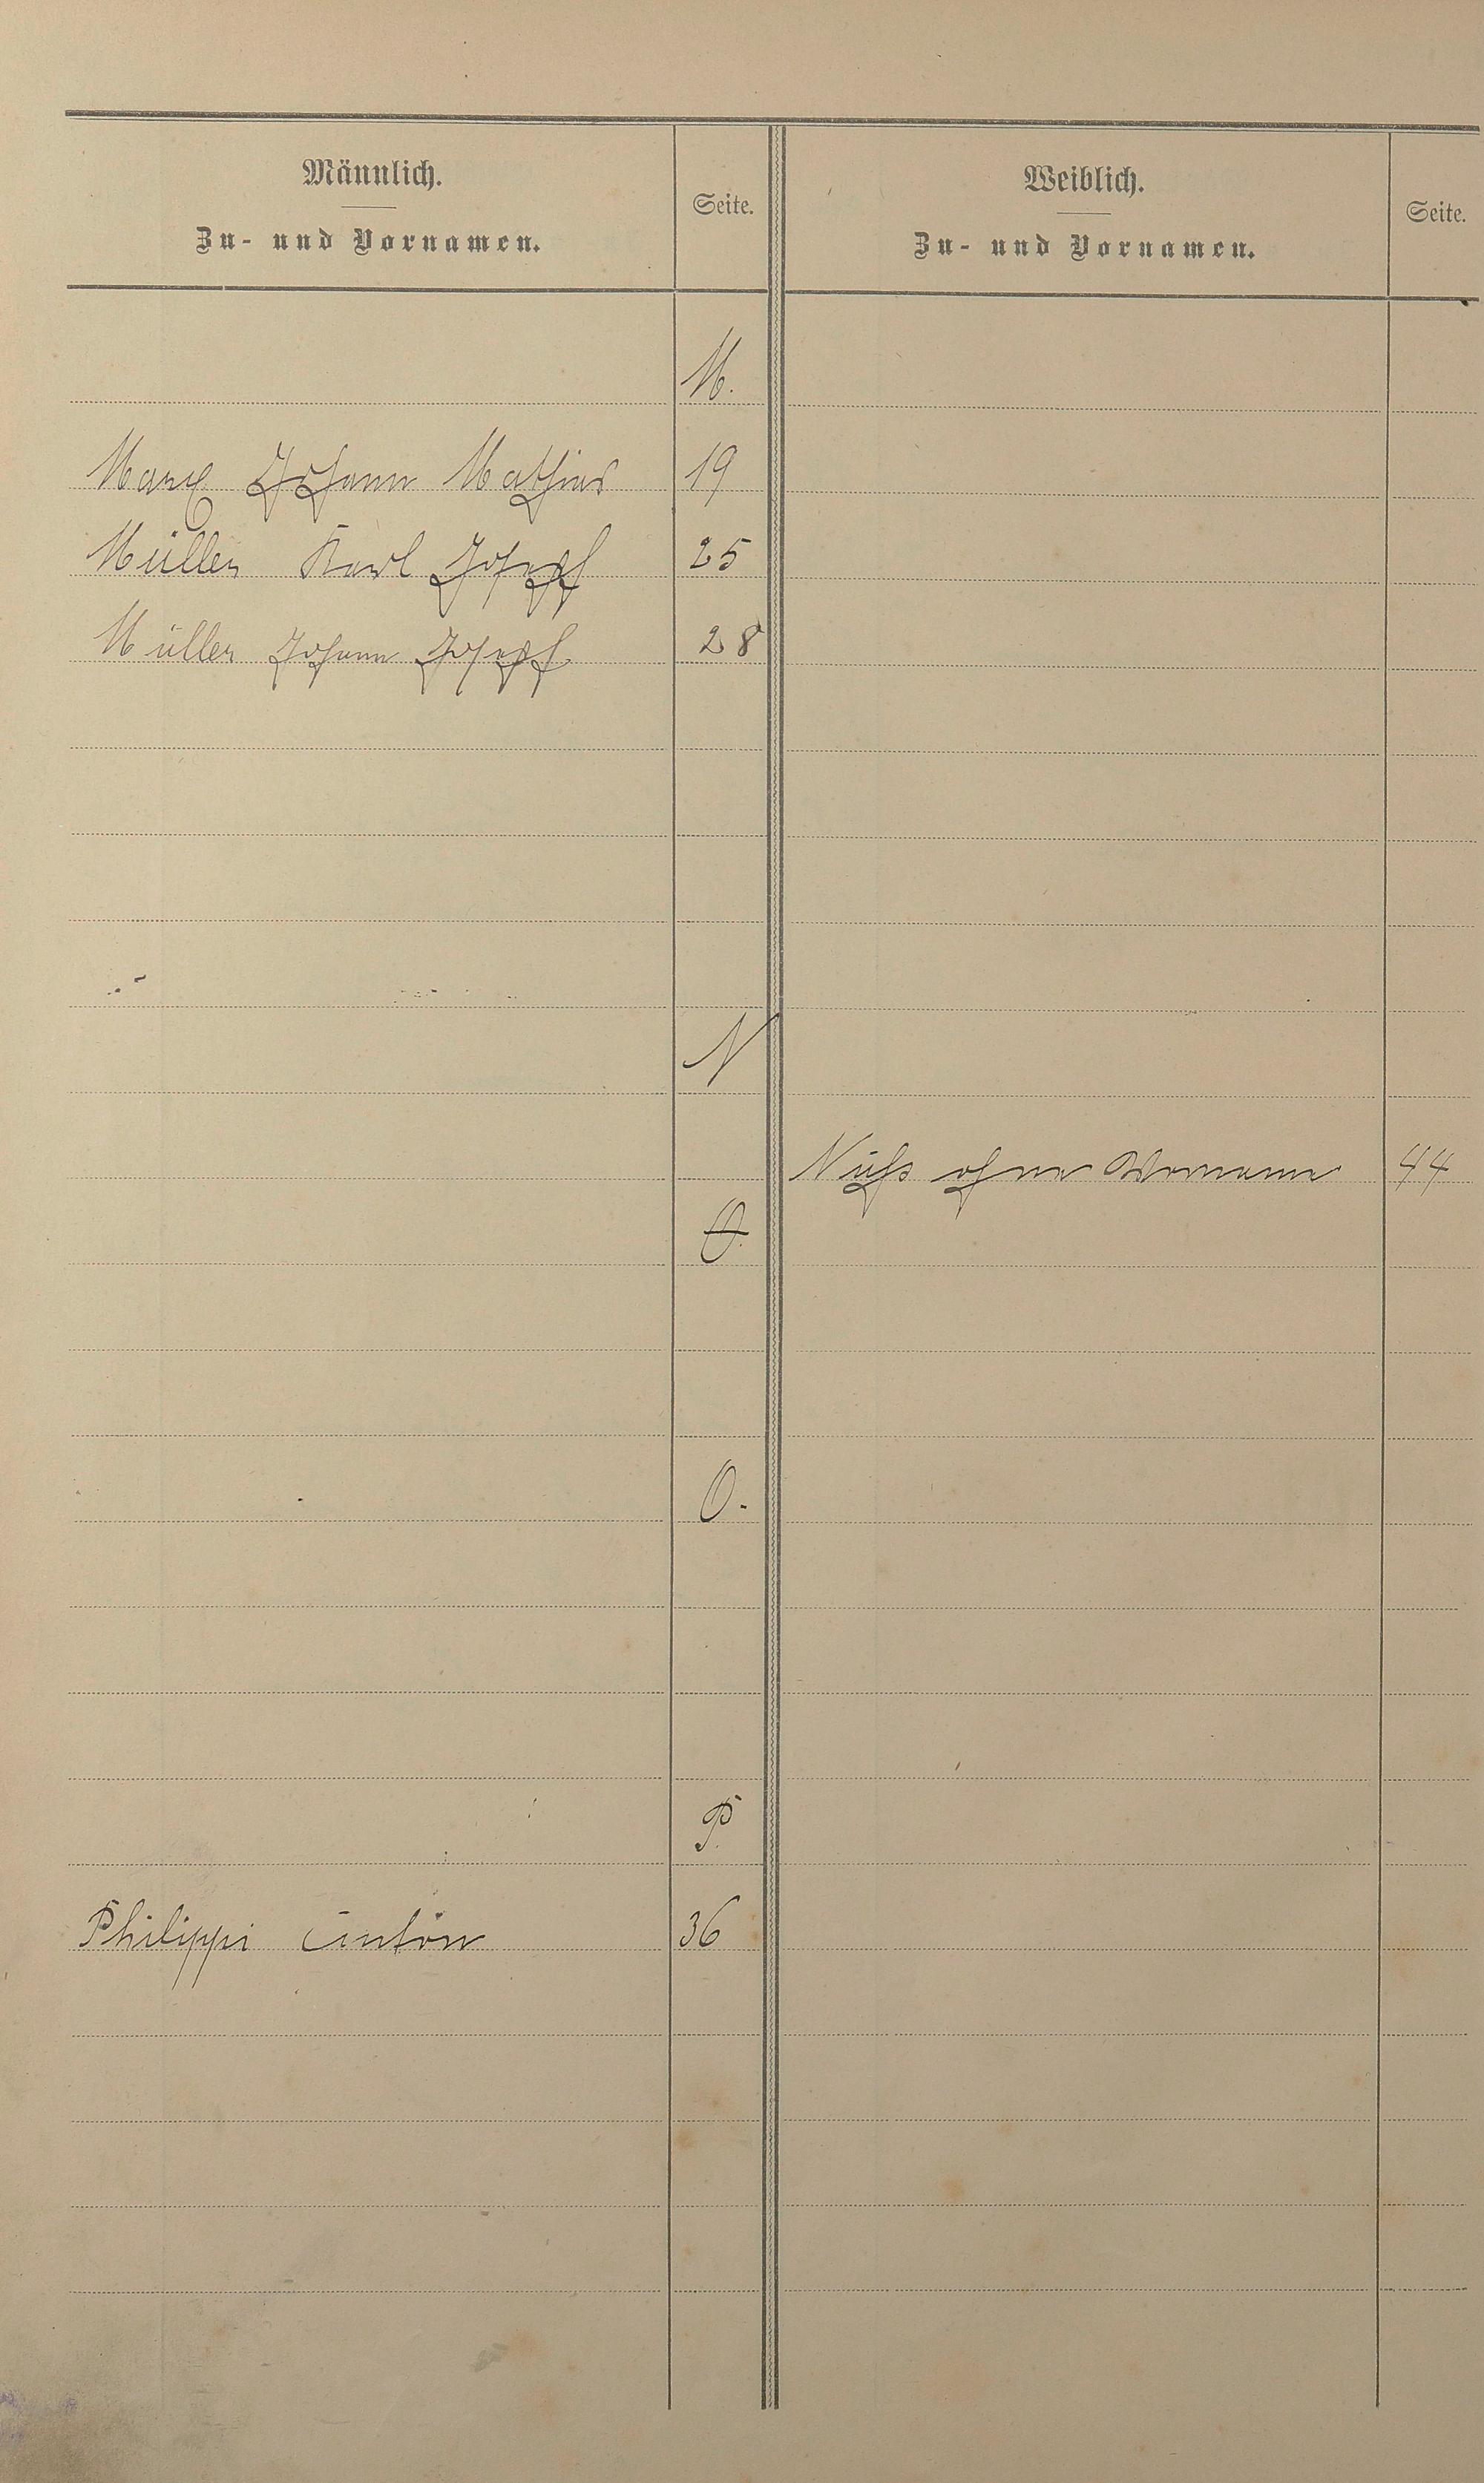 Männlich.
Zu- und Vornamen.
Seite.
Weiblich.
Zu- und Vornamen.
Seite.
M.
Marx Johann Mathias 19
Müller Karl Josepf 25
Müller Johann Josepf 28
N
Nuß ohne Vornamen 44
O.
O.
P.
Philippi Anton 36